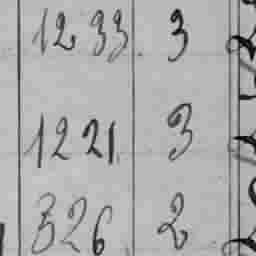 1233. 3
1221. 3
326 2